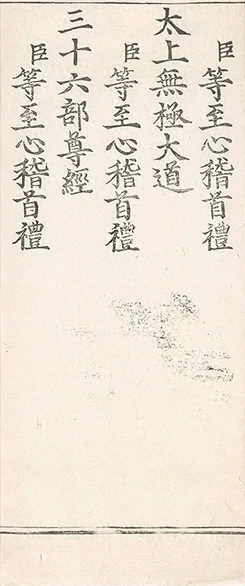 臣等至心稽首禮
太上無極大道
臣等至心稽首禮
三十六部尊經
臣等至心稽首禮